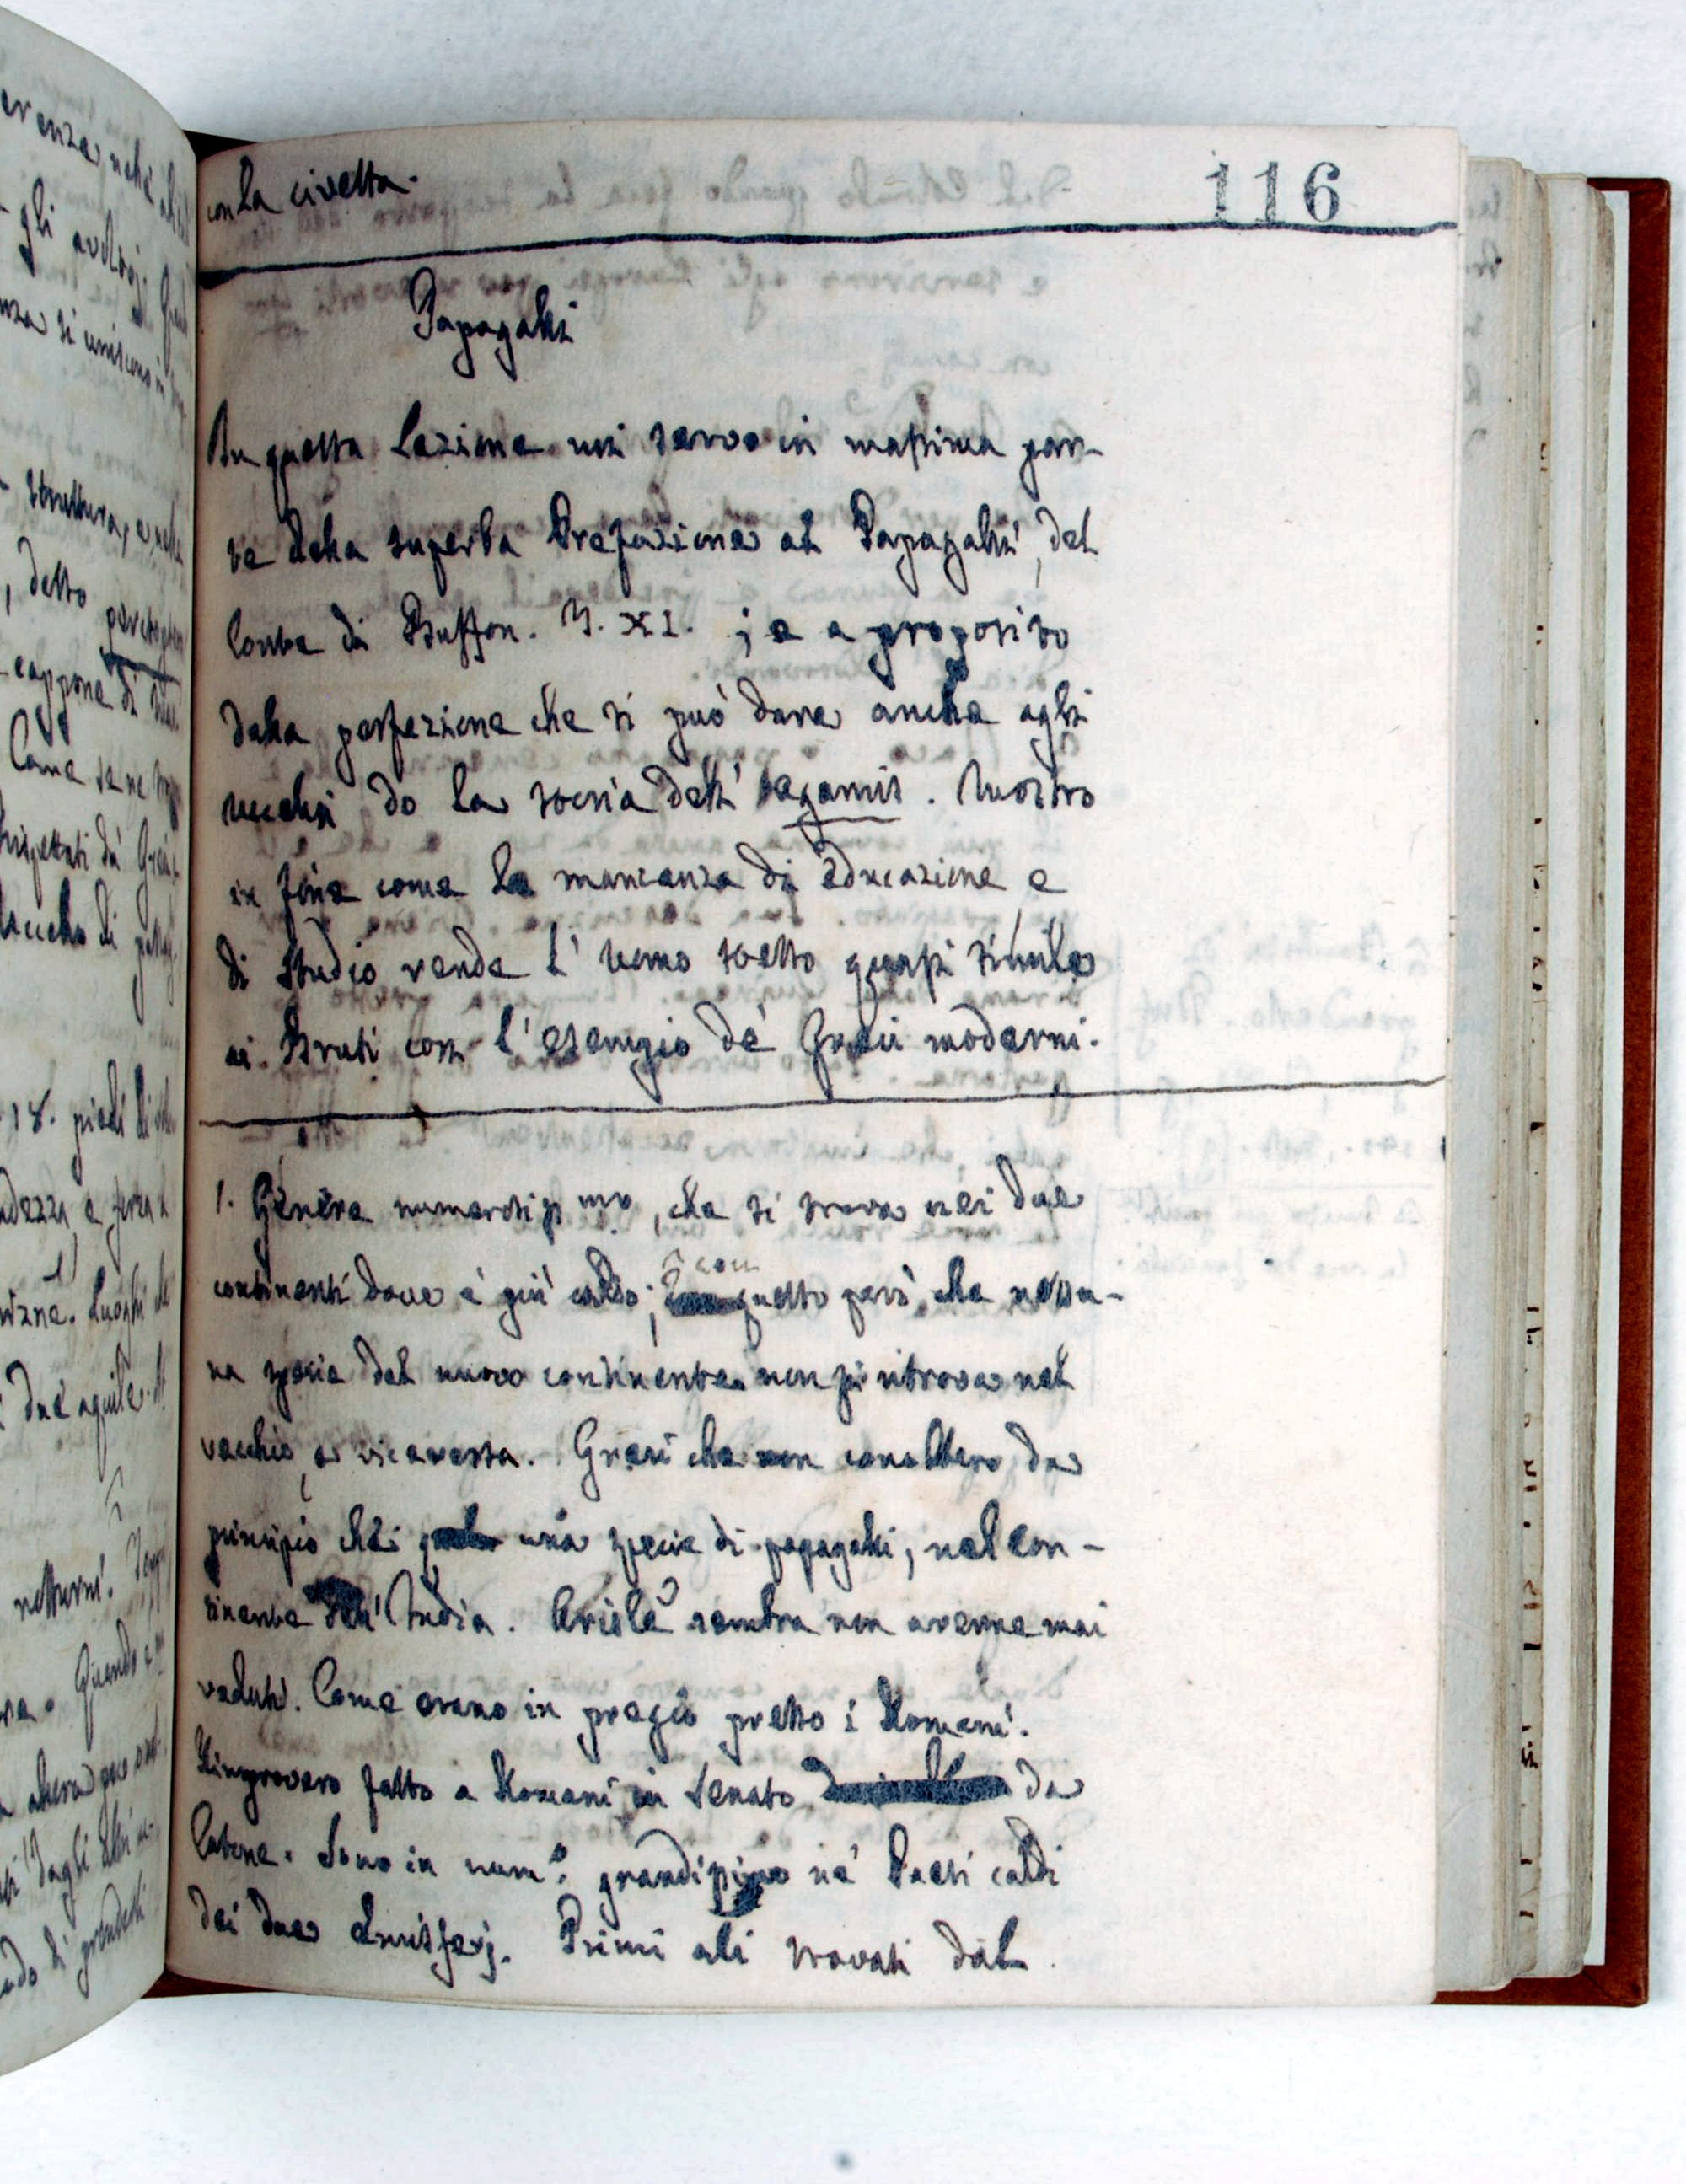 con la civetta.
116
Papagalli
In questa Lezione mi servo in massima par-
te della superba Prefazione ai Papagalli, del
Conte di Buffon. T. XI. ; e a proposito
della perfezione che si può dare anche agli
uccelli do la storia dell' agamis. Mostro
in fine come la mancanza di educazione, e
di studio rende l' uomo stesso quasi simile
ai Bruti con l' esempio de' Greci moderni.
1. Genere numerosissmo, che si trova nei due
continenti dove è più caldo; con questo però, che nessu-
na specie del nuovo continente non si ritrova nel
vecchio, e viceversa. Greci che non conobbero da
principio che una specie di papagalli, nel con-
tinente dell' India. Arisle sembra non averne mai
veduti. Come erano in pregio presso i Romani.
Rimprovero fatto a Romani in Senato da
Catone. Sono in num.o grandissimo ne' Paesi caldi
dei due Emisferj. Primi ali trovati dal